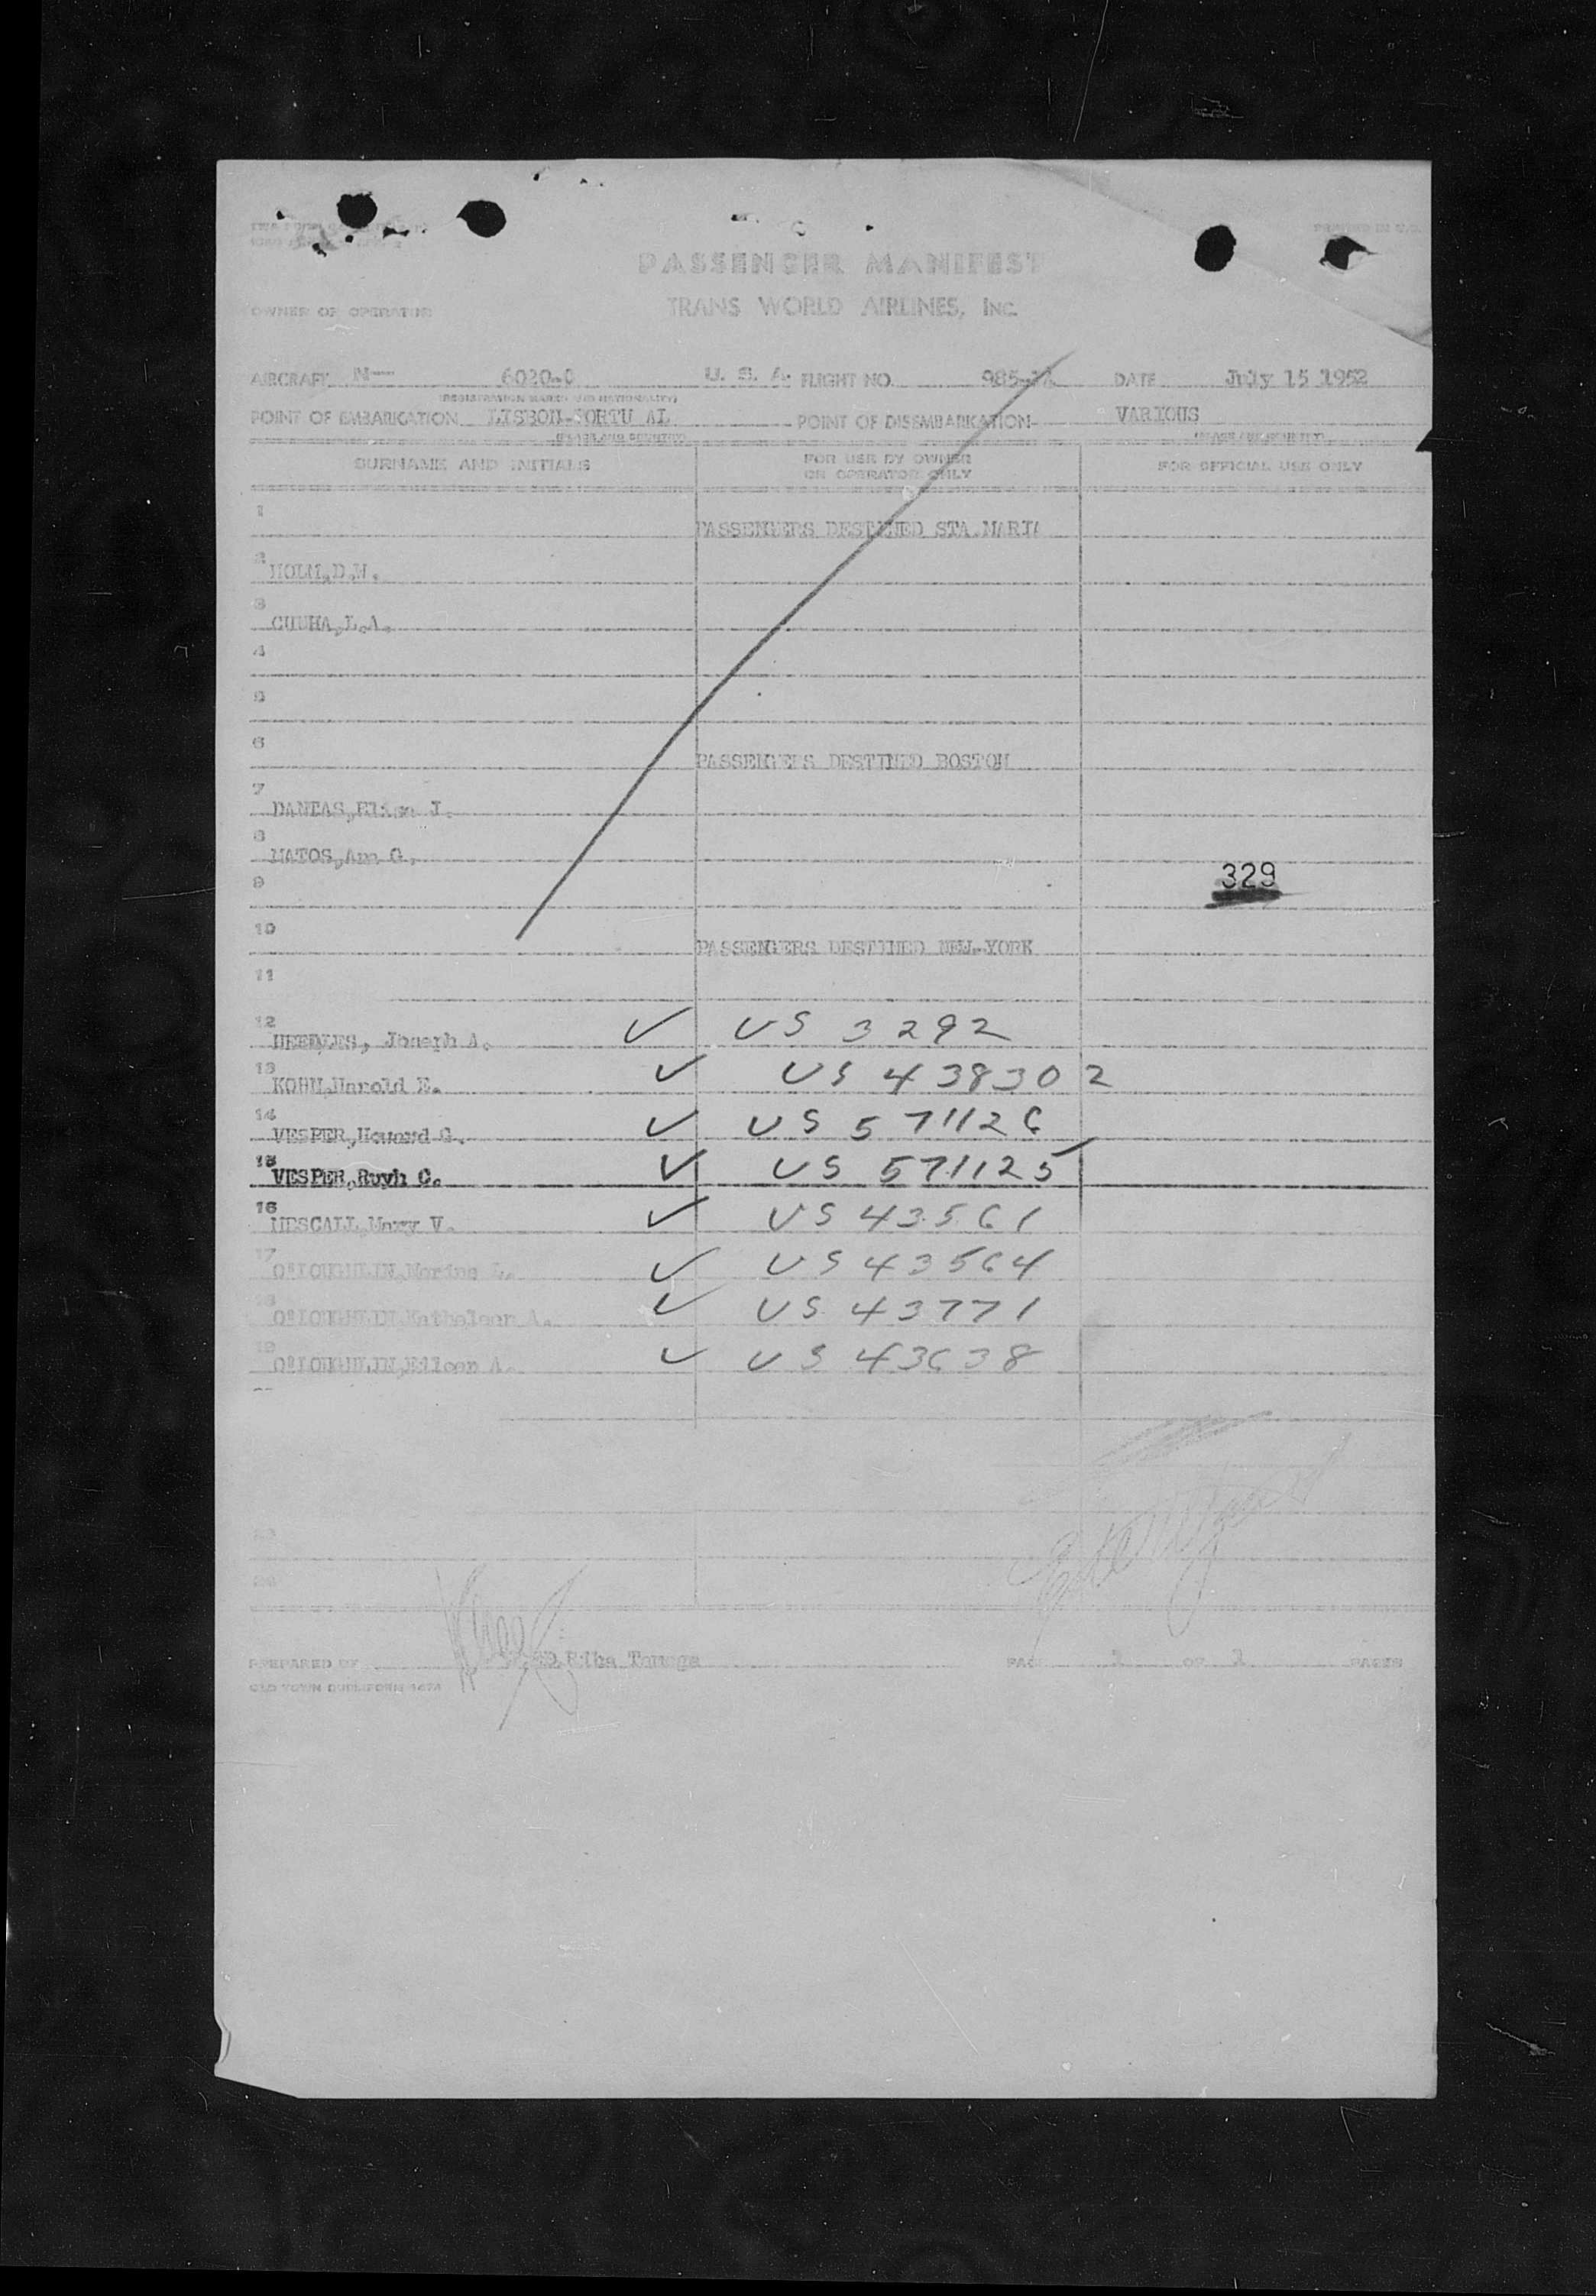 PRINTED IN U.S.
PASSENGER MANIFEST
OWNER OR OPERATOR
TRANS WORLD AIRLINES, INC.
AIRCRAFT N— 6020-C U. S. A. FLIGHT NO. 985- DATE July 15 1952
(REGISTRATION MARKS AND NATIONALITY)
POINT OF EMBARKATION LISBON-PORTU AL POINT OF DISEMBARKATION VARIOUS
(PLACE AND COUNTRY) (PLACE AND COUNTRY)
SURNAME AND INITIALS FOR USE BY OWNER OR OPERATOR ONLY FOR OFFICIAL USE ONLY
1 PASSENGERS DESTINED STA.MARIA
2 HOLM,D.W.
3 CUNHA,L.A.
4
5
6 PASSENGERS DESTINED BOSTON
7 DANTAS,Elisa J.
8 MATOS,Ana G.
9 329
10 PASSENGERS DESTINED NEW-YORK
11
12 NEEDLES, Joseph A. ✓ US 3292
13 KOHN,Harold E. ✓ US 438302
14 VESPER,Howard G. ✓ US 571126
15 VESPER,Ruyh C. ✓ US 571125
16 MESCALL,Mary V. ✓ US 43561
17 O'LOUGHLIN, L. ✓ US 43564
18 O'LOUGHLIN,Kathaleen A. ✓ US 43771
19 O'LOUGHLIN,Eileen A. ✓ US 43638
23
24
PREPARED BY PAGE 1 OF 1 PAGES
OLD TOWN DUPLIFORM